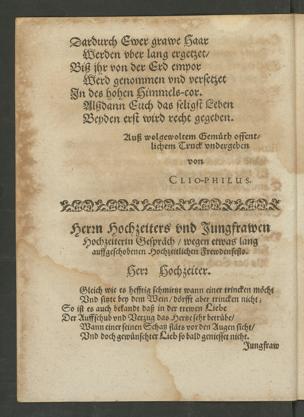 Dardurch Ewer grawe Haar
Werden vber lang ergetzet/
Biß jhr von der Erd empor
Werd genommen vnd versetzet
In des hohen Himmels-cor.
Alßdann Euch das seligst Leben
Beyden erst wird recht gegeben.
Auß wolgewoltem Gemüth offent-
lichem Truck vndergeben
von
CLIO-PHILUS.
Herrn Hochzeiters vnd Jungfrawen
Hochzeiterin Gespräch / wegen etwas lang
auffgeschobenen Hochzeitlichen Frewdenfests.
Herr Hochzeiter.
Gleich wie es hefftig schmirtzt wann einer trincken möcht
Vnd sitzt bey dem Wein / dörfft aber trincken nicht;
So ist es auch bekandt daß in der trewen Liebe
Der Auffschub vnd Verzug das Hertze sehr betrübe/
Wann einer seinen Schatz stäts vor den Augen sicht/
Vnd doch gewünschter Lieb so bald geniesset nicht.
Jungfraw